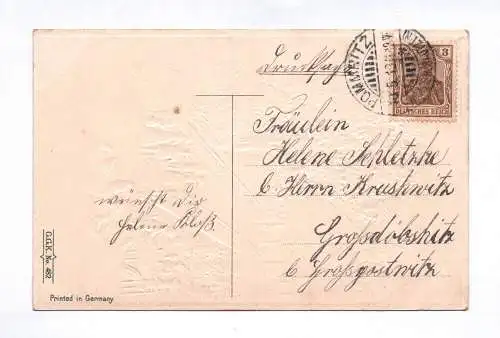 Drucksache
POMMRITZ
3
DEUTSCHES REICH
Fräulein
Helene Schletzke
b. Herrn Kruskwitz
Grossdöbschitz
b. Grosspostwitz
wünscht Dir
Helene Kloß.
G.G.K. No. 482
Printed in Germany